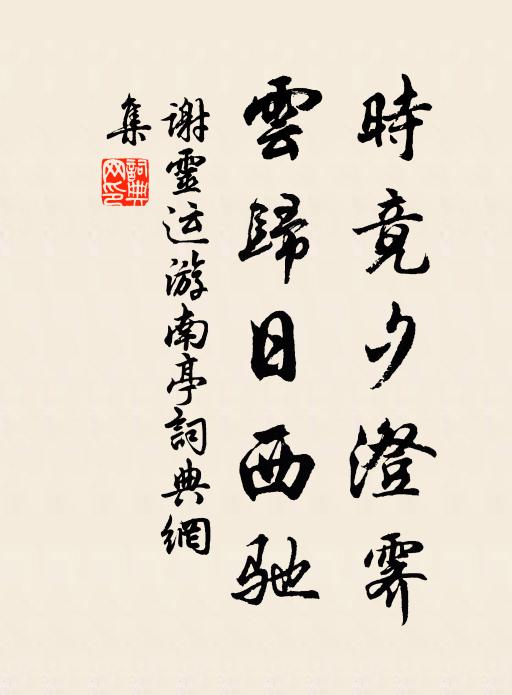 時竟夕澄霽
雲歸日西馳
謝靈运游南亭詞典網
集
詞典网印